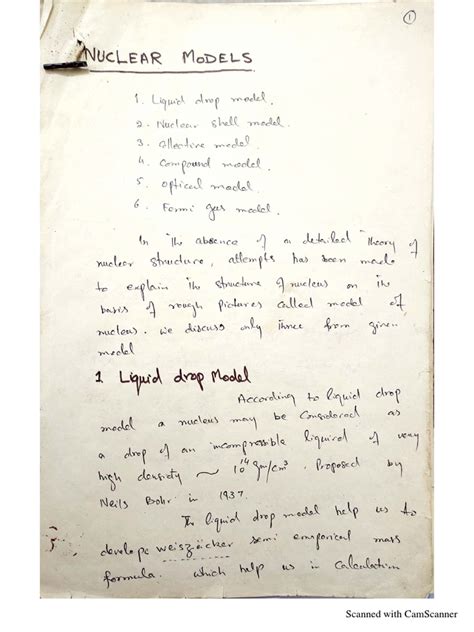 1
NUCLEAR MODELS
1. Liquid drop model.
2. Nuclear shell model.
3. model.
4. Compound model.
5. optical model.
6. Fermi gas model.
In the absence of an detailed Theory of
nuclear structure, attempts has been made
to explain the structure of nucleus on the
basis of rough pictures called model of
nucleus. we discuss only three from given
model
1 Liquid drop Model
According to liquid drop
model a nucleus may be Considered as
a drop of an incompressible liquid of very
high density ~ 10^14 gm/cm^3. Proposed by
Neils Bohr in 1937.
The liquid drop model help us to
develope weiszäcker semi emperical mass
formula. which help us in Calculation
Scanned with CamScanner